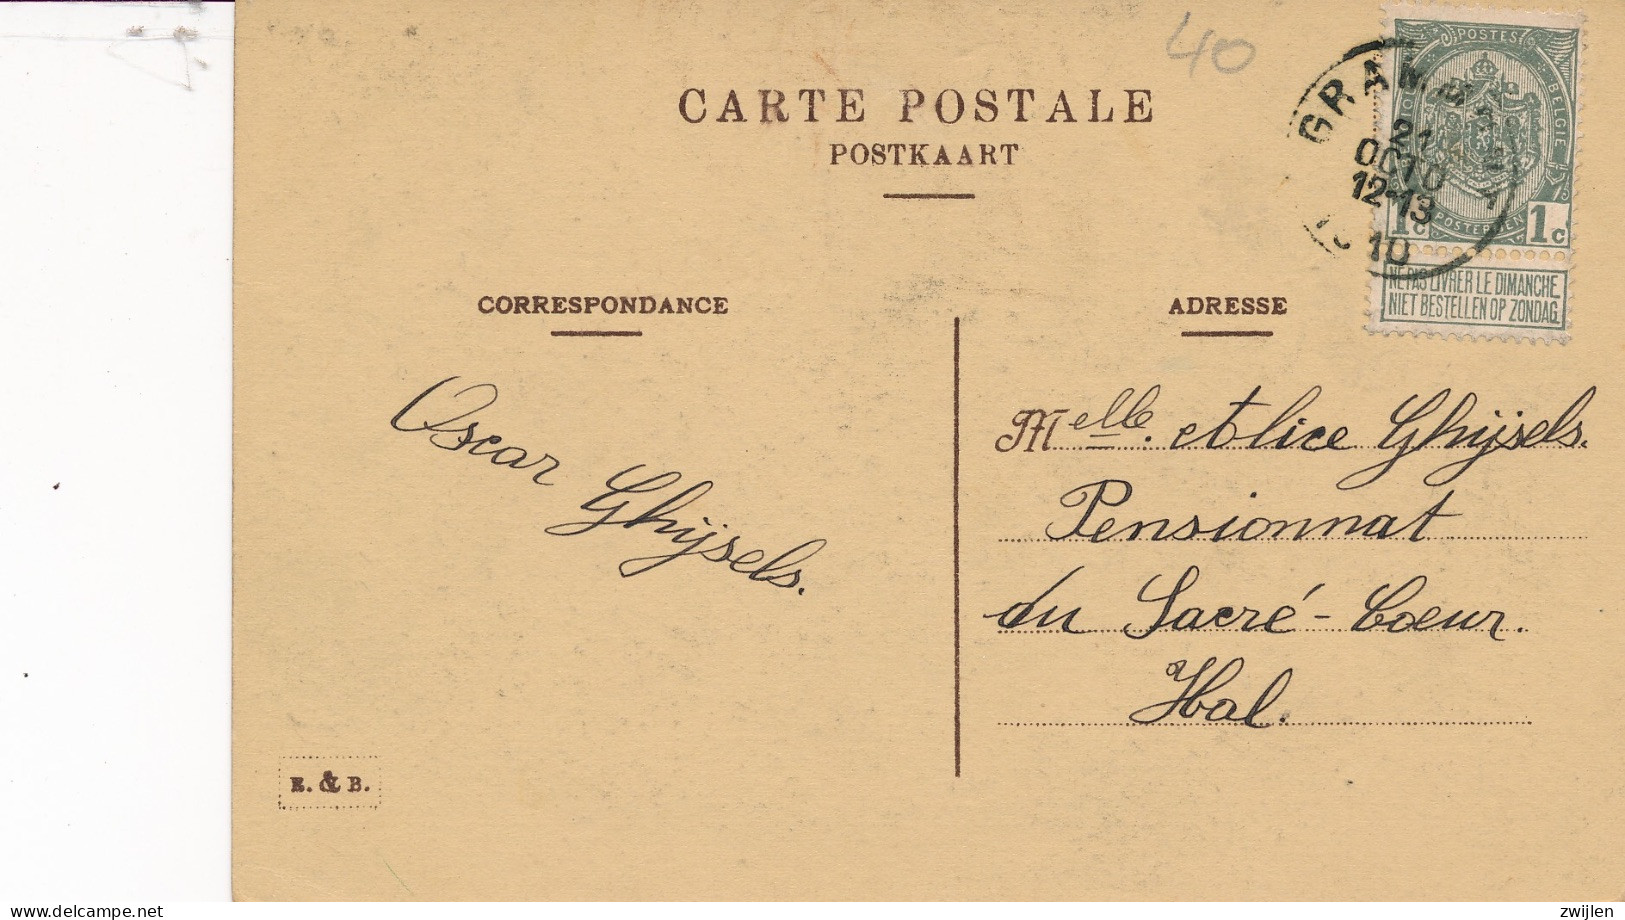 40
CARTE POSTALE
POSTKAART
POSTES
BELGIE
POSTERIJEN
1c 1c
NE PAS LIVRER LE DIMANCHE
NIET BESTELLEN OP ZONDAG
GRAMM
21
OCTO
12-13
1910
CORRESPONDANCE
ADRESSE
Oscar Ghijsels.
Melle. Alice Ghijsels.
Pensionnat
du Sacré-Coeur.
Hal.
E. & B.
delcampe.net
zwijlen